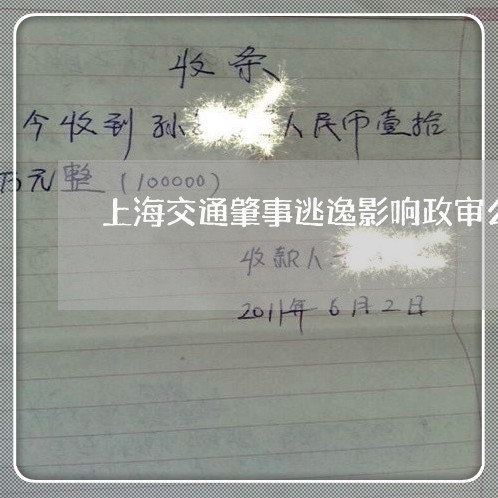 收条
今收到孙 人民币壹拾
万元整（100000）
上海交通肇事逃逸影响政审
收款人
2011年6月2日